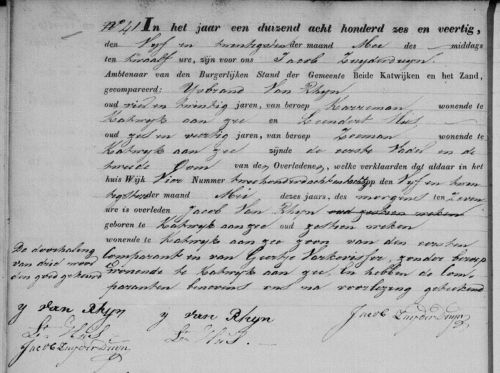 No 41 In het jaar een duizend acht honderd zes en veertig,
den Vijf en twintigsten der maand Mei des middags
ten twaalf ure, zijn voor ons Jacob Zuyderduyn
Ambtenaar van den Burgerlijken Stand der Gemeente Beide Katwijken en het Zand,
gecompareerd: Ysbrand Van Rhyn
oud vier en twintig jaren, van beroep Karreman wonende te
Katwyk aan zee en Leendert
oud zes en veertig jaren, van beroep Zeeman wonende te
Katwyk aan zee zijnde de eerste Vader en de
tweede Oom van den Overledene, welke verklaarden dat aldaar in het
huis Wijk Vier Nummer tweehonderdacht op den Vyf en twin
tigsten der maand Mei dezes jaars, des morgens ten Zeven
ure is overleden Jacob Van Rhyn oud zestien weken
geboren te Katwyk aan zee oud zestien weken
wonende te Katwyk aan zee zoon van den eersten
Comparant en van Geertje zonder beroep
wonende te Katwyk aan zee. En hebben de Com-
paranten benevens ons na voorlezing geteekend
De doorhaling
van drie woor
den goedgekeurd
y van Rhyn
Jacob Zuyderduyn
y van Rhyn
Jacob Zuyderduyn